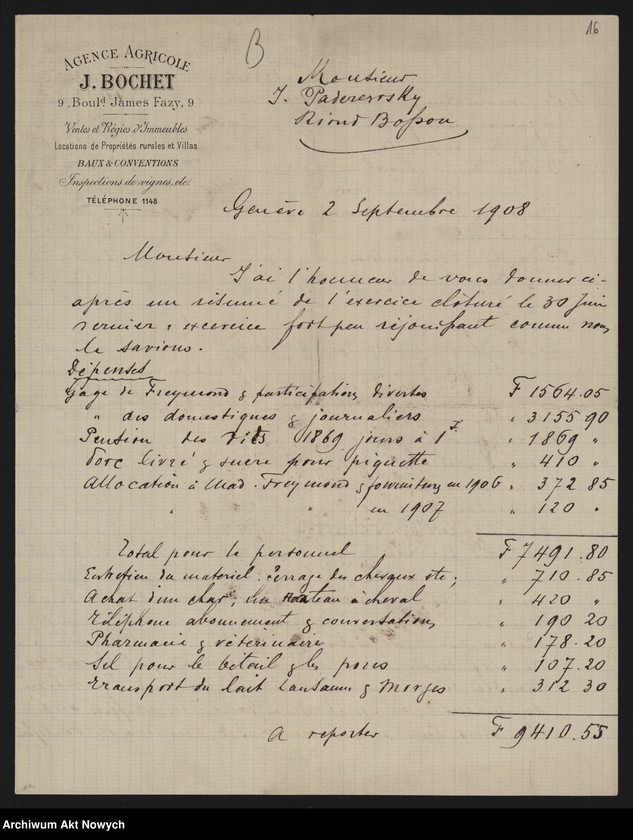 16
B
AGENCE AGRICOLE
J. BOCHET
9. Boulᵈ James Fazy, 9
Ventes et Régies d'Immeubles
Locations de Propriétés rurales et Villas
BAUX & CONVENTIONS
Inspections de vignes, etc.
TÉLÉPHONE 1148
Monsieur
J. Paderewsky
Riond Bosson
Genève 2 Septembre 1908
Monsieur
J'ai l'honneur de vous donner ci-
après un résumé de l'exercice clôturé le 30 Juin
dernier, exercice fort peu réjouissant comme nous
le savions.
Dépenses
Gage de Freymond & participations diverses F 1564.05
" des domestiques & journaliers " 3155 90
Pension des dits 1869 jours à 1 F. " 1869 "
Porc livré & sucre pour piquette " 410 "
Allocation à Mad. Freymond & fournitures en 1906 " 372 85
" " en 1907 " 120 "
Total pour le personnel F 7491.80
Entretien du matériel. Ferrage des chevaux etc; " 710.85
Achat d'un char, un manteau à cheval " 420 "
Téléphone abonnement & conversations " 190 20
Pharmacie & vétérinaire " 178.20
Sel pour le bétail & les porcs " 107.20
Transport du lait Lausanne & Morges " 312 30
A reporter F 9410.55
Archiwum Akt Nowych